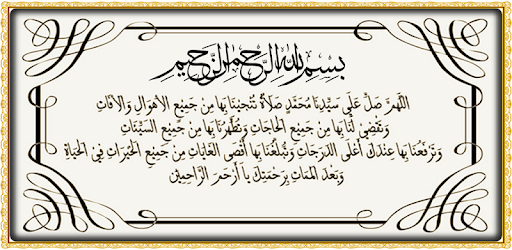 بسم الله الرحمن الرحيم
اللهم صل على سيدنا محمد صلاة تنجينا بها من جميع الاهوال والآفات
وتقضي لنا بها من جميع الحاجات وتطهرنا بها من جميع السيئات
وترفعنا بها عندك أعلى الدرجات وتبلغنا بها أقصى الغايات من جميع الخيرات في الحياة
وبعد الممات برحمتك يا أرحم الراحمين